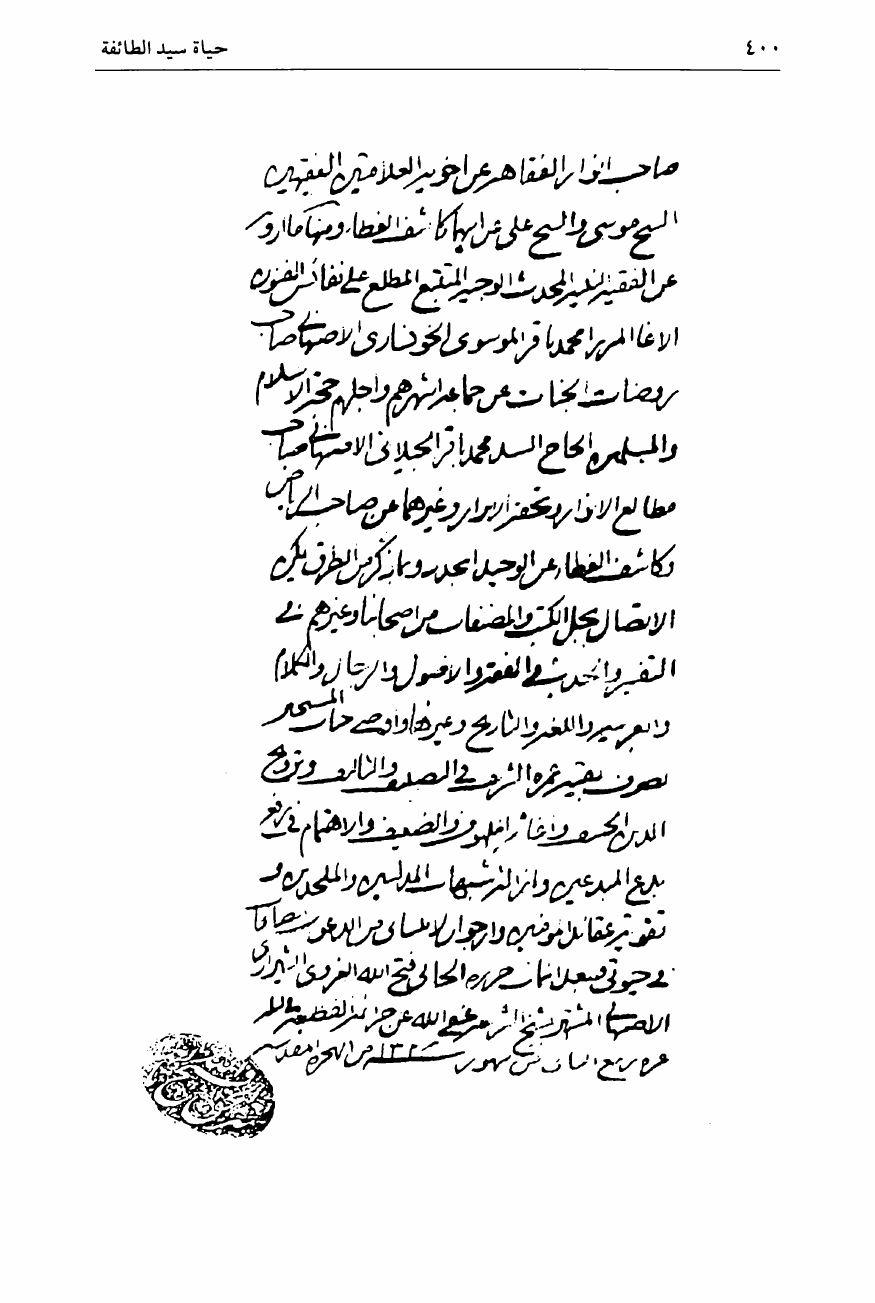 حياة سيد الطائفة
٤٠٠
صاحب انوار الفقاهه عن اخويه العلامتين الفقيهين
الشيخ موسى والشيخ على عن ابيهما كاشف الغطاء ومنها ما ارويه
عن الفقيه المحدث الوجيه المتتبع المطلع على نفائس الفنون
الاغا الميرزا محمد باقر الموسوى الخونسارى الاصبهانى صاحب
روضات الجنات عن جماعه اشهرهم واجلهم حجة الاسلام
والمسلمين الحاج السيد محمد باقر الجيلانى الاصبهانى صاحب
مطالع الانوار وتحفة الابرار وغيرهما عن صاحب الرياض
وكاشف الغطاء عن الوحيد المجدد وبما ذكر من الطرق يمكن
الاتصال بجل الكتب والمصنفات من اصحابنا وغيرهم فى
التفسير والحديث والفقه والاصول والرجال والكلام
والعربيه واللغه والتاريخ وغيرها واوصى جناب المستجيز
بصرف بقيه عمره الشريف فى التصنيف والتاليف وترويج
الدين الحنيف واغاثة الملهوف والضعيف والاهتمام فى رفع
بدع المبدعين وازالة شبهات المدلسين والملحدين و
تقويه عقائد المؤمنين وارجو ان لا ينسانى من الدعوات
فى حيوتى وبعد مماتى حرره الجانى فتح الله الغروى الشيرازى
الاصبهانى المشتهر بشيخ الشريعه عفى الله عن جرائمه
غره ربيع من شهور من الهجره المقدسه